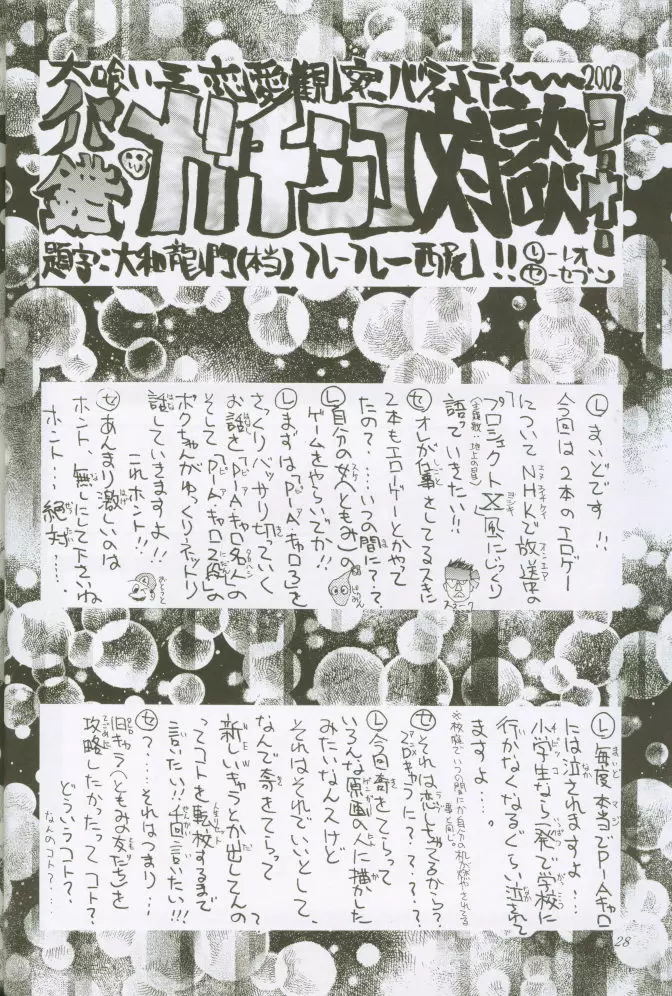 大喰い王 恋愛観察バラエティー 2002
ガチンコ対談
コーナー
題字:大和龍門(本当) フレーフレー西尾!!
Ⓛーレオ
セーセブン
Ⓛまいどです!!
今回は2本のエロゲー
についてNHKで放送中の
プロジェクトX風にじっくり
語っていきたい!!
スネーク
セオレが仕事をしてるスキに
2本もエロゲーとかやって
たの?……いつの間に??
Ⓛ自分の女(ともみ)の
ゲームをやらいでか!!
Ⓛまずは「P・A・キャロ3」を
さっくりバッサリ切っていく
お話を「P・A・キャロ名人」の
そして「P・A・キャロ2」の
ボクちゃんがゆっくりネットリ
話していきますよ!!
これホント!!
おとうと
セあんまり激しいのは
ホント、無しにして下さいね
ホント…絶対……
Ⓛ毎度本当P・Aキャロ
には泣されますよ…
小学生なら一発で学校に
行かなくなるぐらい泣されて
ますよ…。
※板橋でいつの間にか自分の机が燃やされてる事と同じ。
セそれは恋しちゃってるから?
アニロキャラに????
Ⓛ今回奇をてらって
いろんな原画の人に描かした
みたいなんスけど
それはそれでいいとして、
なんで奇をてらって
新しいキャラとか出してんの?
ってコトを転校するまで
言いたい!!千回言いたい!!!
セ?……それはつまり…
旧キャラ(ともみの友だち)を
攻略したかたってコト?
どういうコト?
なんのコト?…
28